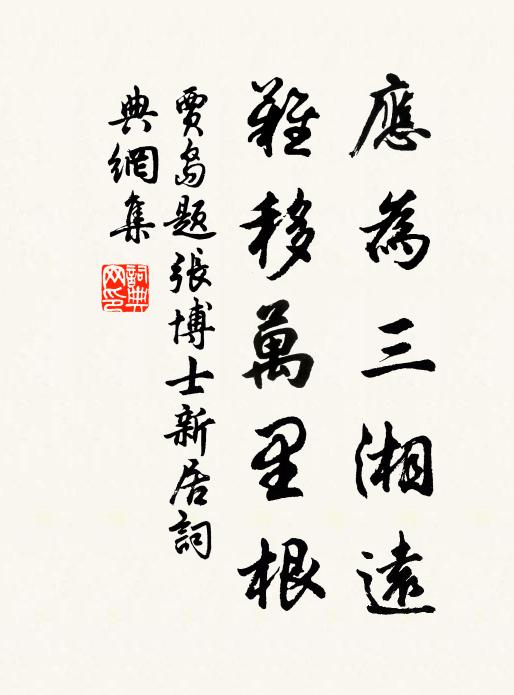 應為三湘遠
難移萬里根
賈島題張博士新居詞
典網集
詞典
网印